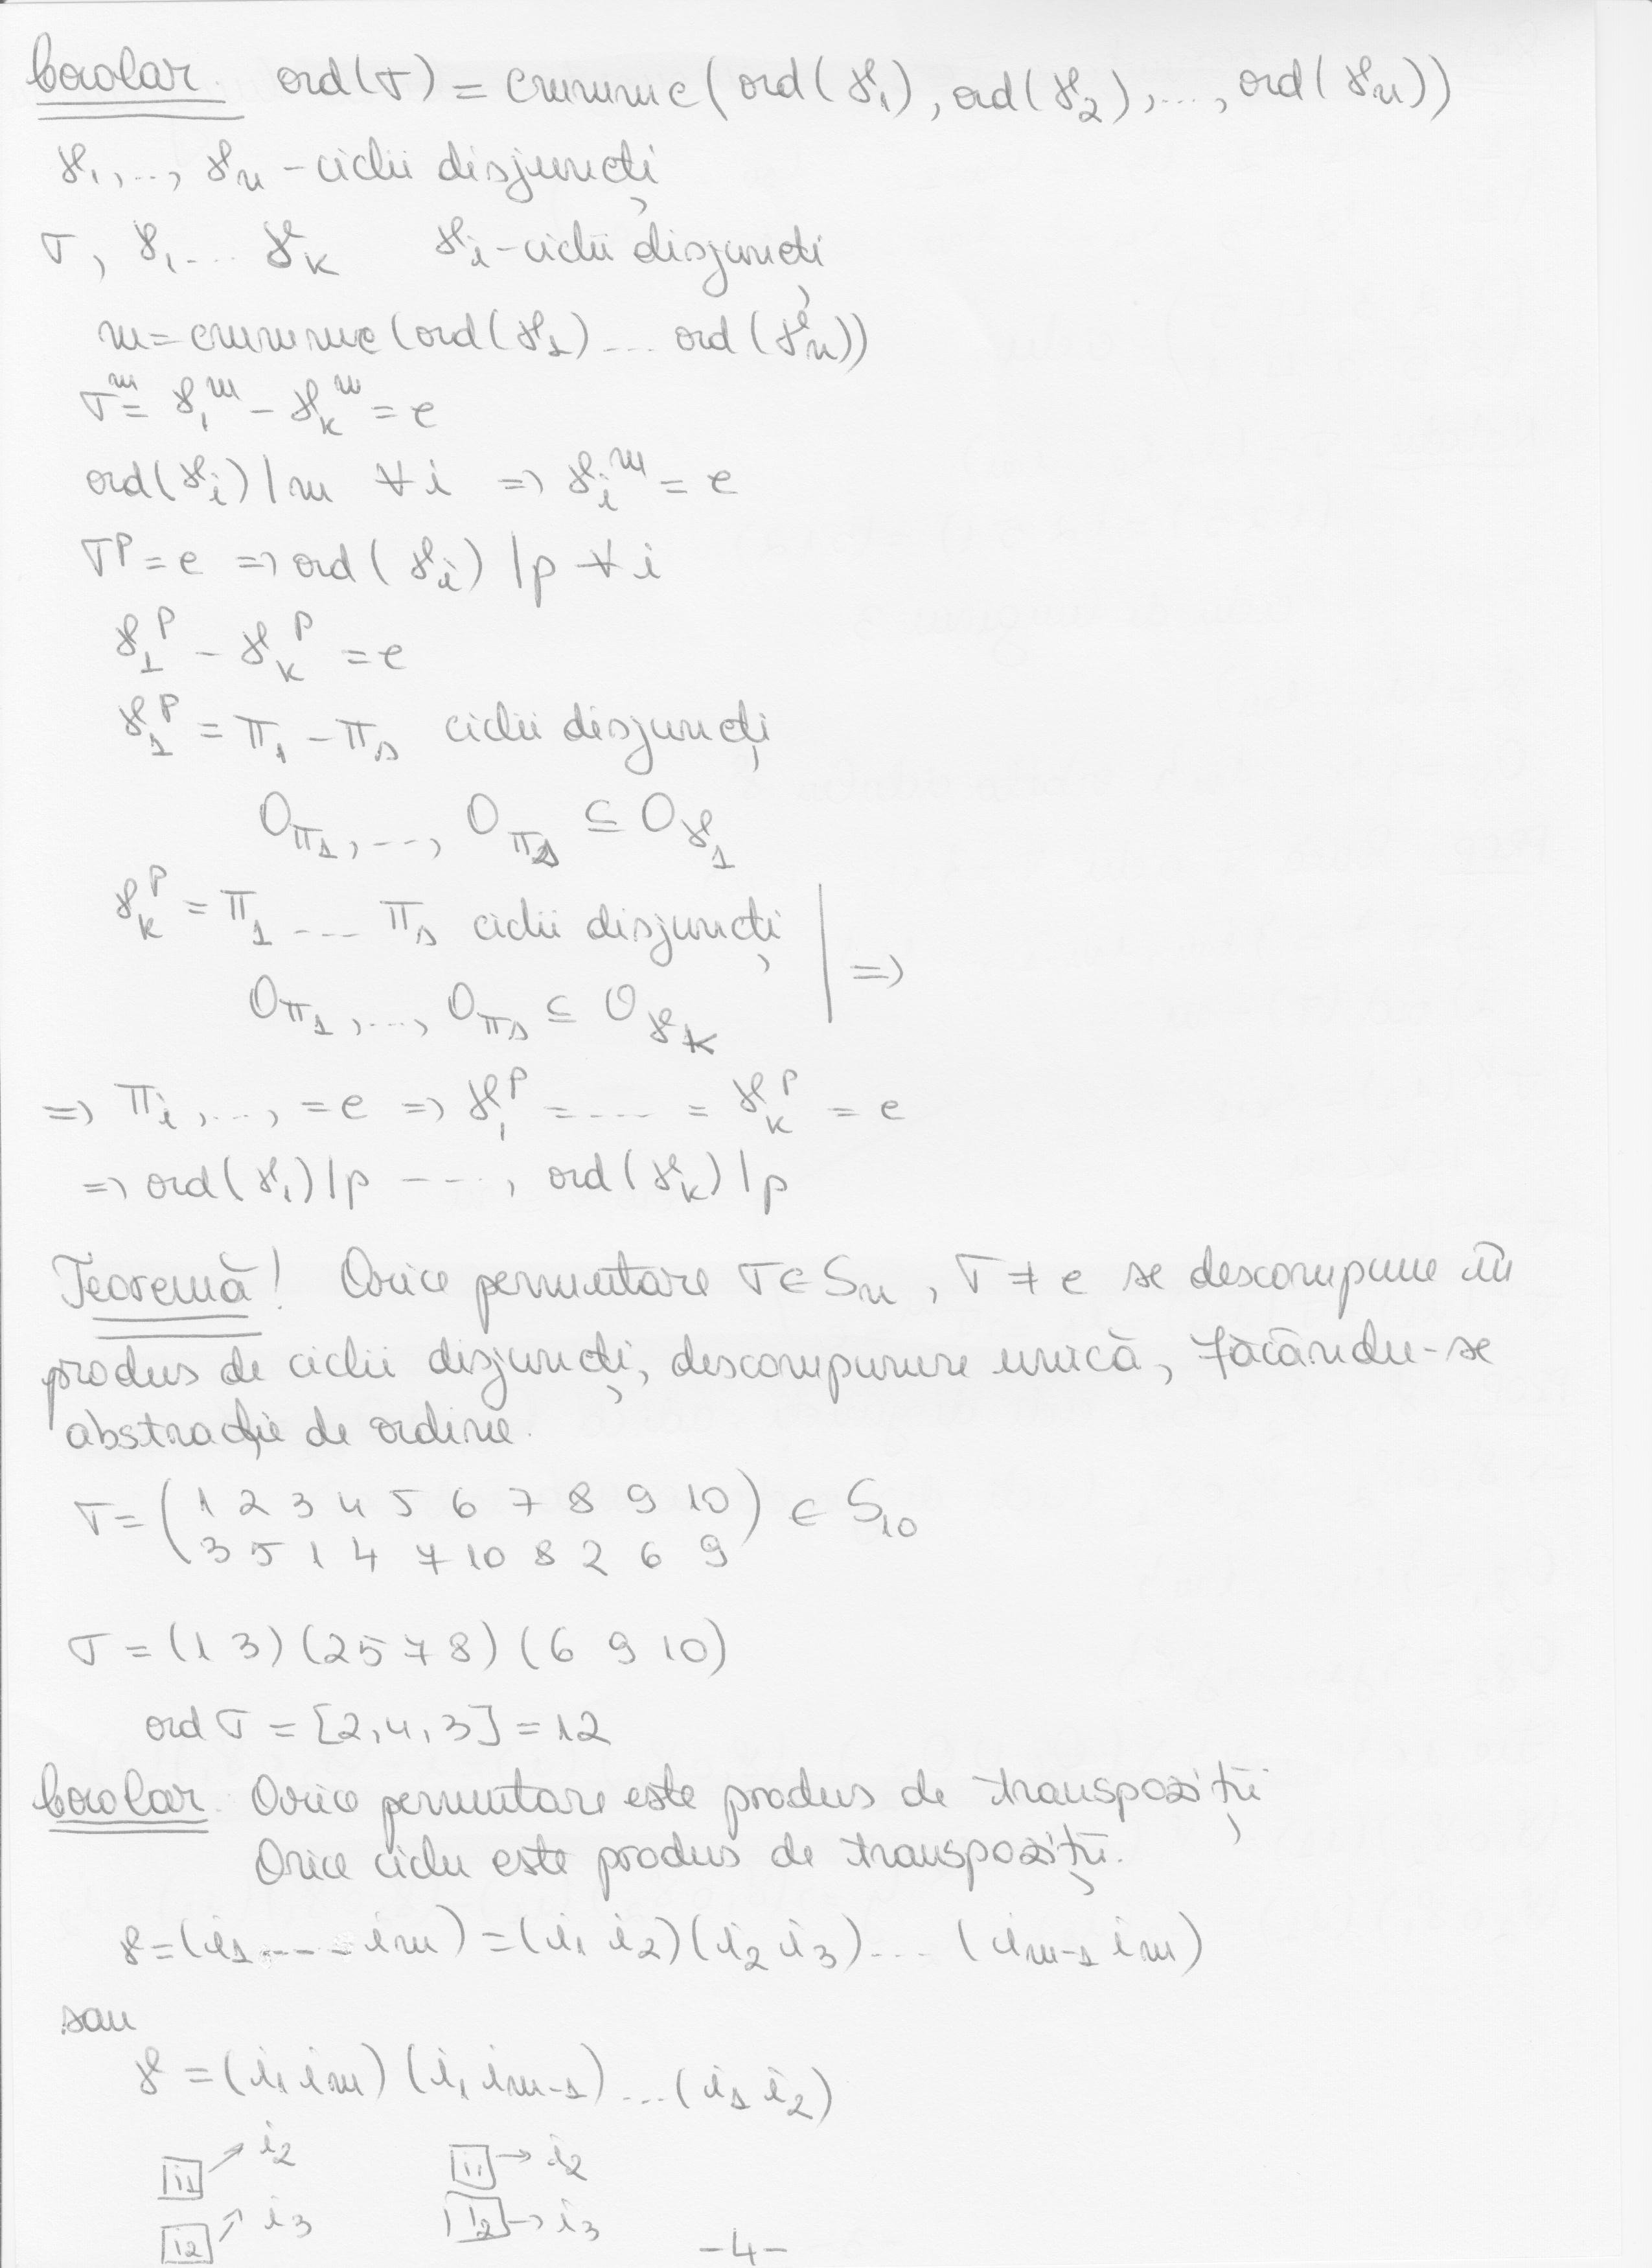 Corolar. ord(σ) = cmmmc(ord(γ₁), ord(γ₂),..., ord(γₙ))
γ₁,..., γₙ - ciclii disjuncți
σ, γ₁ ... γₖ γᵢ - ciclii disjuncți
m = cmmmc(ord(γ₁) ... ord(γₙ))
σᵐ = γ₁ᵐ - γₖᵐ = e
ord(γᵢ) | m ∀ i => γᵢᵐ = e
σᵖ = e => ord(γᵢ) | p ∀ i
γ₁ᵖ - γₖᵖ = e
γ₁ᵖ = π₁ - πₛ ciclii disjuncți
O_π₁,..., O_πₛ ⊆ O_γ₁
γₖᵖ = π₁ ... πₛ ciclii disjuncți | =>
O_π₁,..., O_πₛ ⊆ O_γₖ
=> πᵢ,..., = e => γ₁ᵖ = .... = γₖᵖ = e
=> ord(γ₁) | p ---, ord(γₖ) | p
Teoremă! Orice permutare σ ∈ Sₙ, σ ≠ e se descompune în
produs de ciclii disjuncți, descompunere unică, făcându-se
abstracție de ordine.
σ = ( 1 2 3 4 5 6 7 8 9 10 ) ∈ S₁₀
3 5 1 4 7 10 8 2 6 9
σ = (1 3)(2 5 7 8)(6 9 10)
ord σ = [2,4,3] = 12
Corolar. Orice permutare este produs de transpoziții
Orice ciclu este produs de transpoziții.
γ = (i₁ ---- iₘ) = (i₁ i₂)(i₂ i₃) ... (iₘ₋₁ iₘ)
sau
γ = (i₁ iₘ)(i₁ iₘ₋₁) ... (i₁ i₂)
i₁ → i₂ i₁ → i₂
i₂ → i₃ i₂ → i₃
-4-